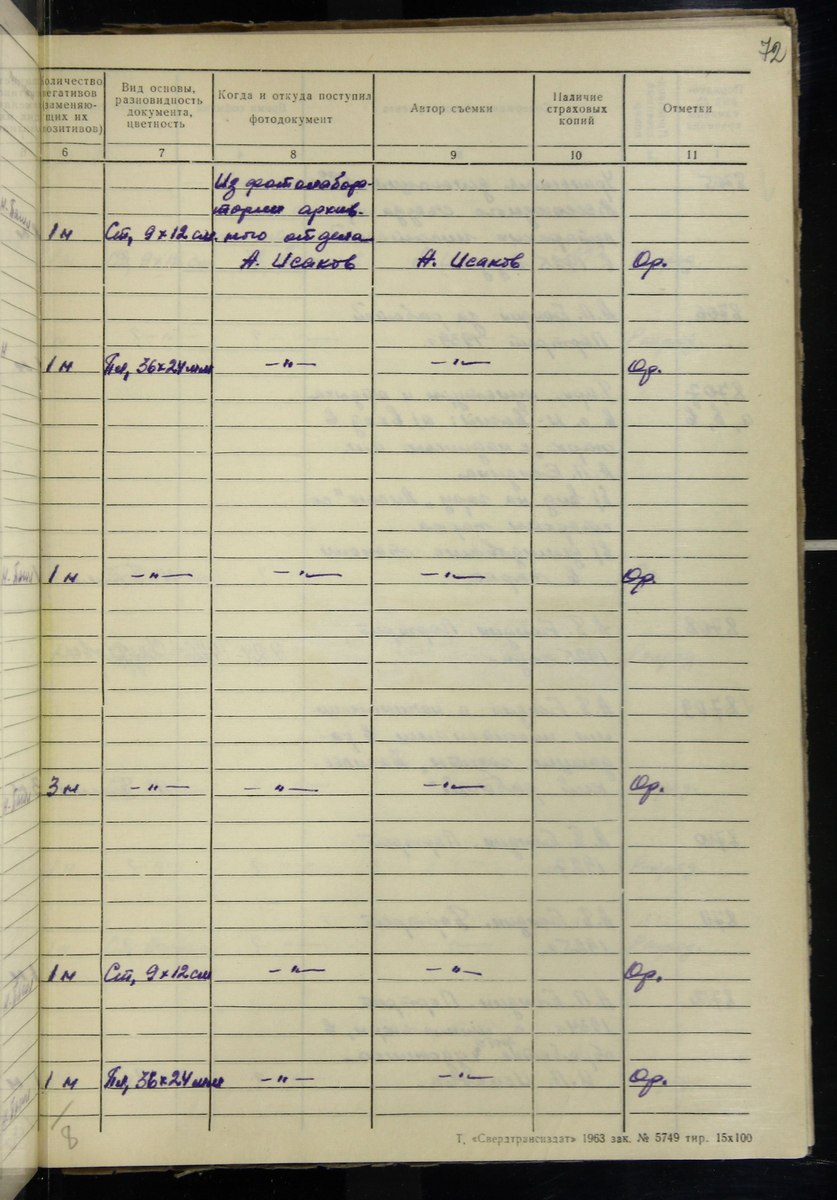 72
Количество негативов (заменяющих их позитивов)
Вид основы, разновидность документа, цветность
Когда и откуда поступил фотодокумент
Автор съемки
Наличие страховых копий
Отметки
6 7 8 9 10 11
Из фотолабора-
тории архив-
1 н Ст, 9×12 см. ного отдела
А. Исаков А. Исаков Ор.
1 н Пл, 36×24 мм —"— —"— Ор.
1 н —"— —"— —"— Ор.
3 н —"— —"— —"— Ор.
1 н Ст, 9×12 см —"— —"— Ор.
1 н Пл, 36×24 мм —"— —"— Ор.
8
Т. «Свердтрансиздат» 1963 зак. № 5749 тир. 15х100